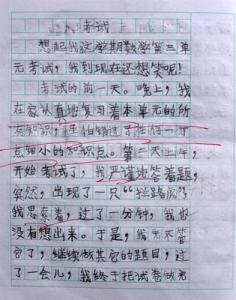 考试
想起我这学期数学第三单
元考试，我到现在还想笑呢！
考试的前一天。晚上，我
在家认真地复习着本单元的所
有知识，生怕错过
点小的知识点。第二天上午，
开始考试了，我严谨地答着题，
突然，出现了一只“拦路虎”，
我思索着，过了一分钟，我也
没有想出来。于是，我先不管
它了，继续做其它的题目，过
了一会儿，我终于把试卷做完